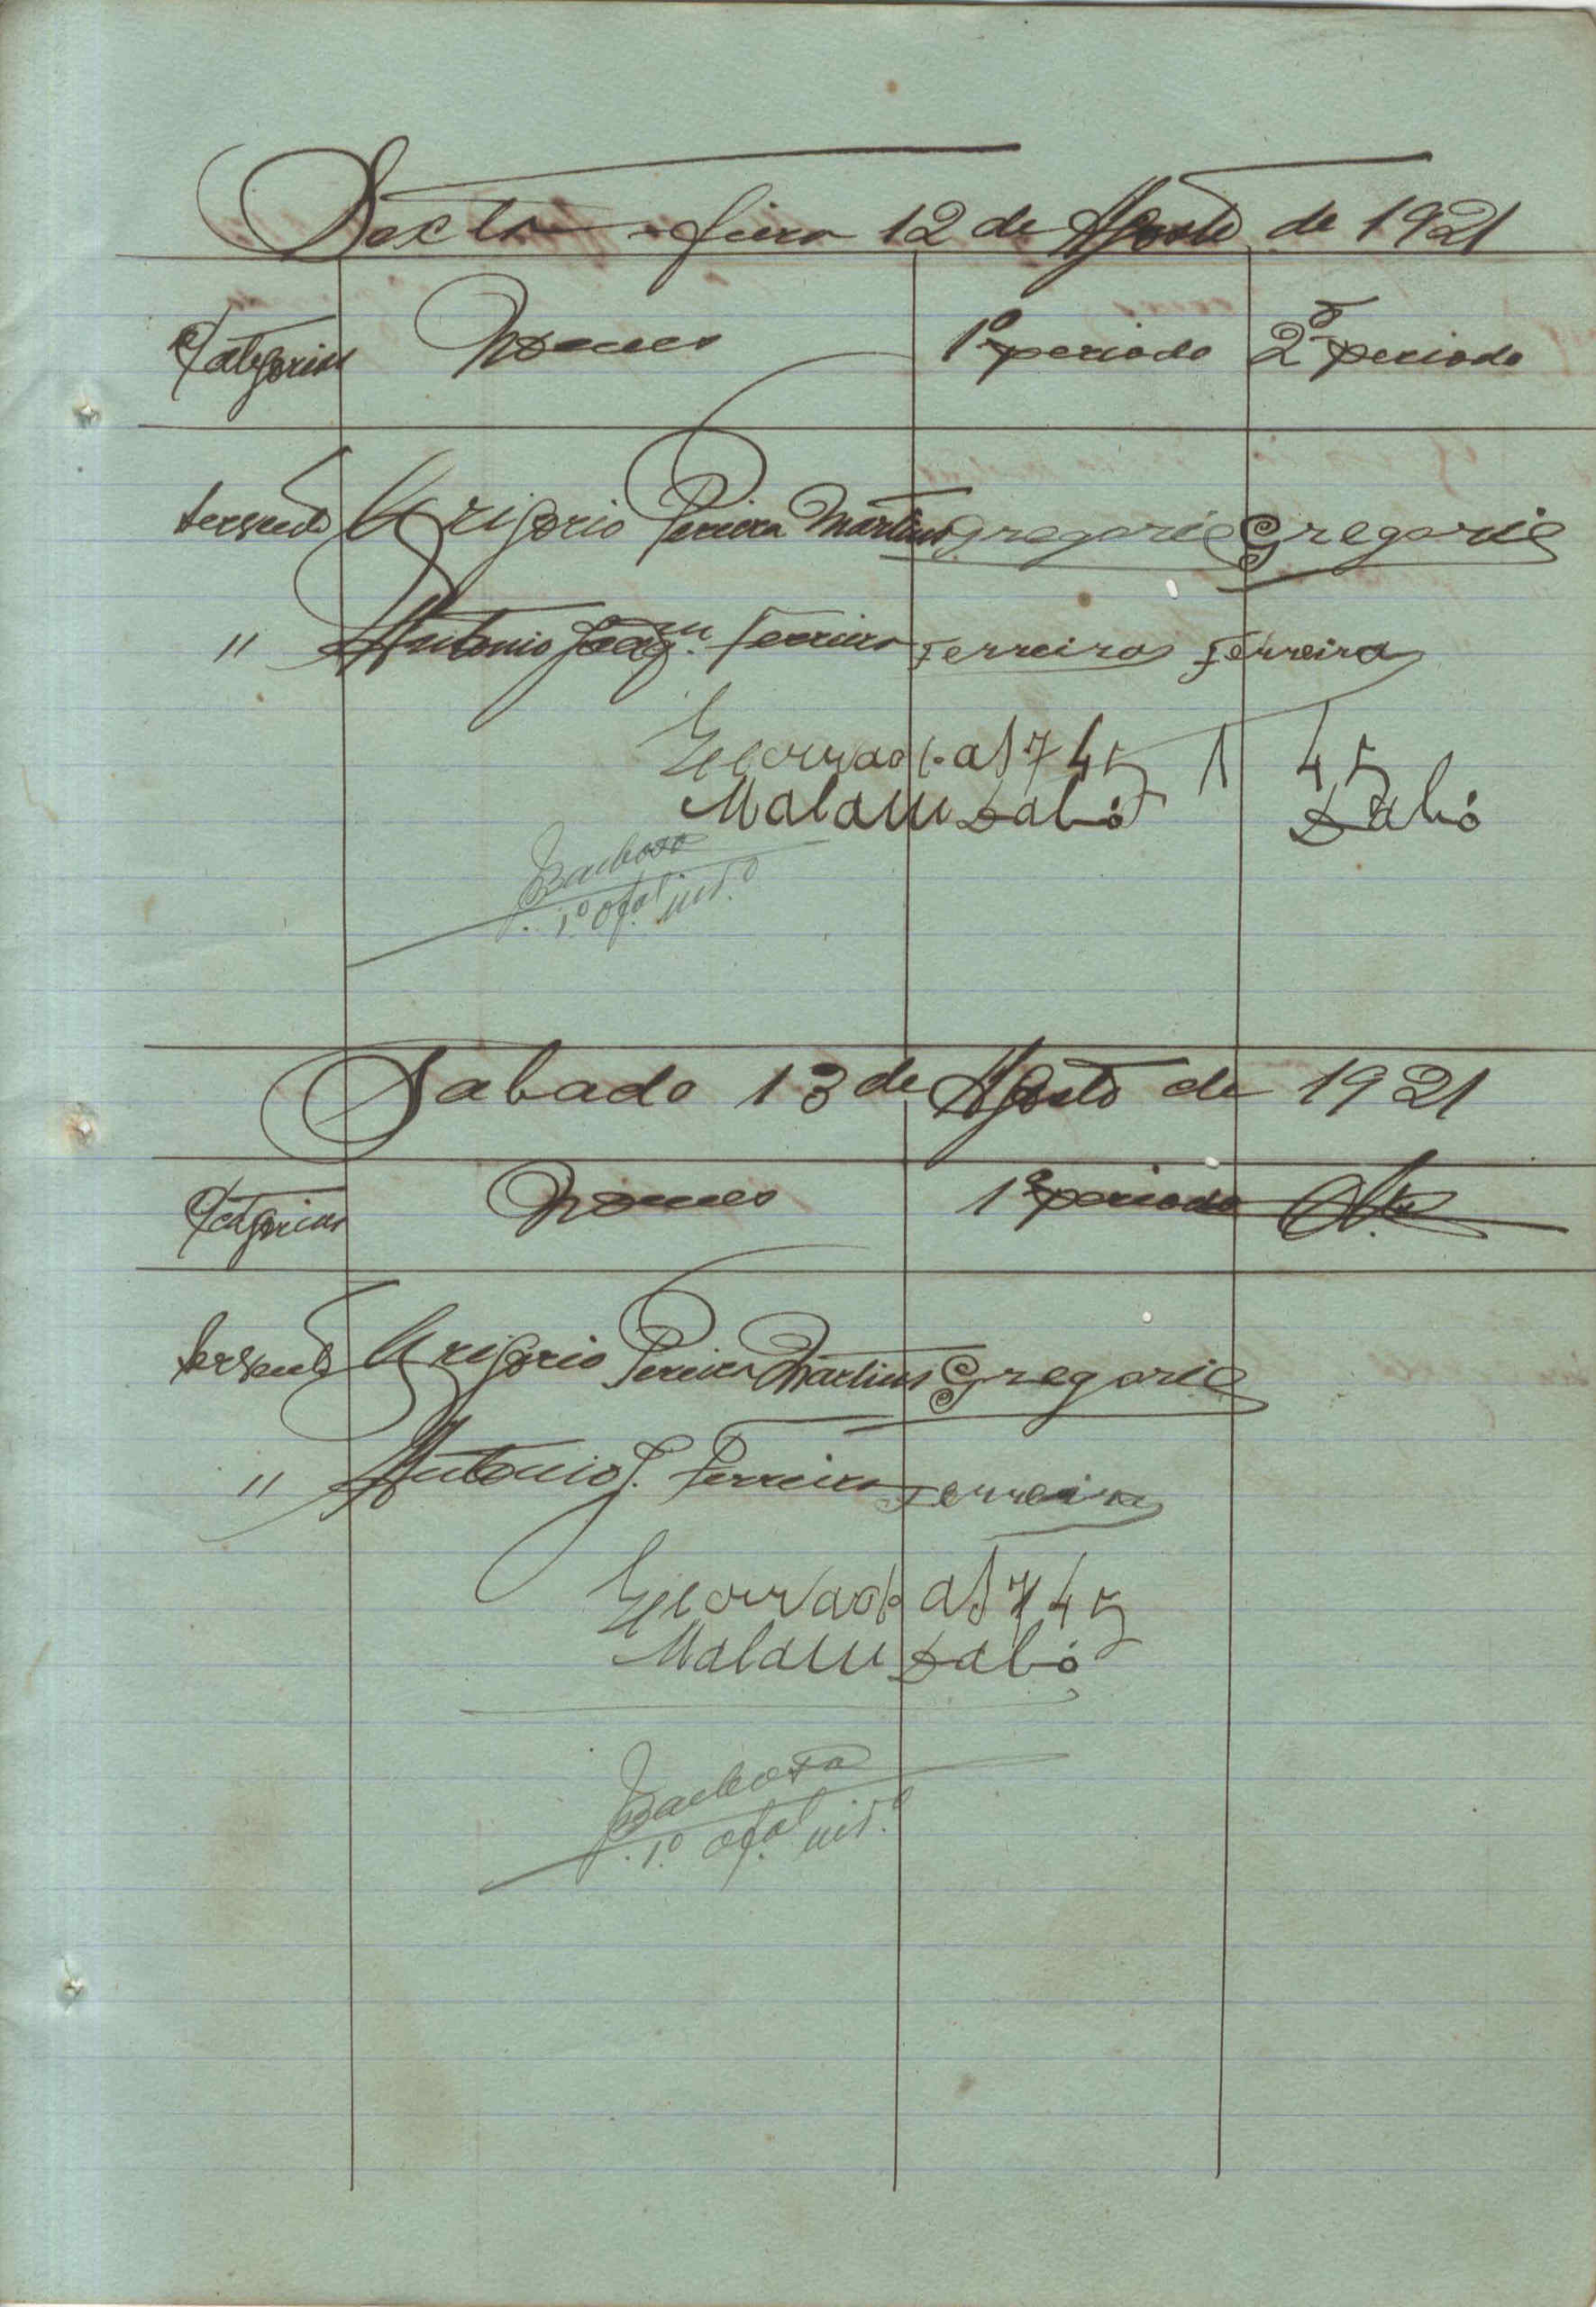 Sexta-feira 12 de Agosto de 1921
Categorias Nomes 1º periodo 2º periodo
Servente Grigorio Pereira Martins Gregorio Gregorio
" Antonio Joaqm. Ferreira Ferreira Ferreira
as 7 45 1 45
Malam Dabó Dabó
Barbosa
1º Ofal. intº
Sabado 13 de Agosto de 1921
Categorias Nomes 1º periodo
Servente Grigorio Pereira Martins Gregorio
" Antonio J. Ferreira Ferreira
as 7 45
Malam Dabó
Barbosa
1º Ofal. intº